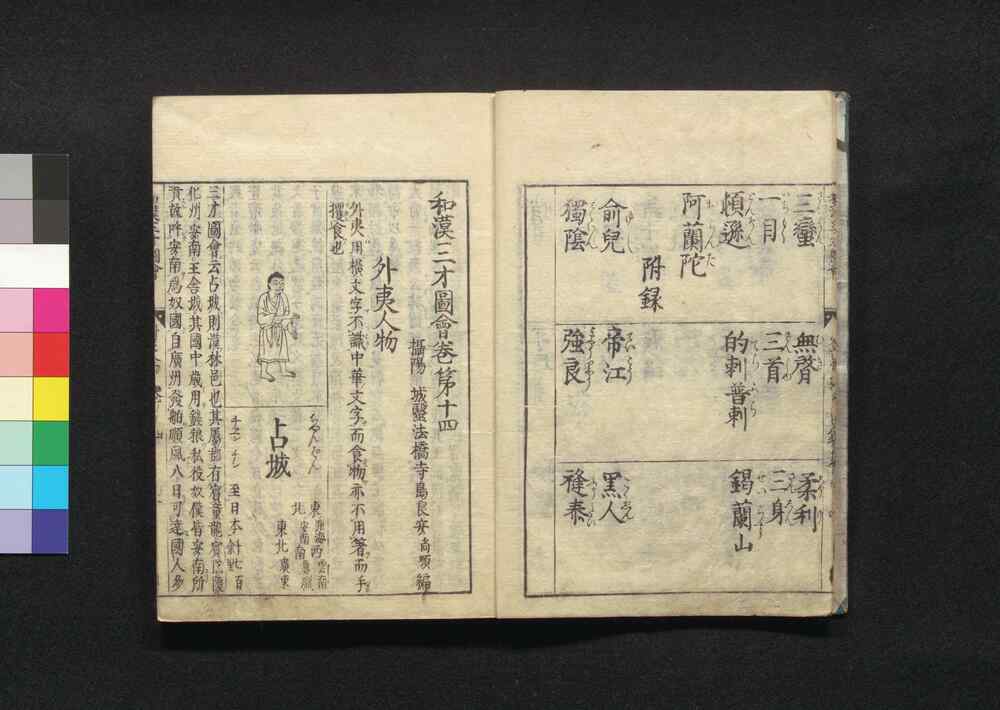 三蠻
無䏿
柔利
一目
三首
三身
頓遜
的剌普剌
錫蘭山
阿蘭陀
附録
俞兒
帝江
黑人
獨陰
強良
䙬泰
和漢三才圖會卷第十四
攝陽 城醫法橋寺島良安尚順編
外夷人物
外夷用橫文字不識中華文字而食物亦不用箸而手
攫食也
占城
東 海西 雲南
北 安南南
東北 廣東
至日本 百
三才圖會云占城則漢林邑也其屬郡有賓童龍賓
化州安南王舎城其國中歳用 狼私役奴僕皆安南所
貢故呼安南爲奴國自廣州發舶順風八日可達國人多